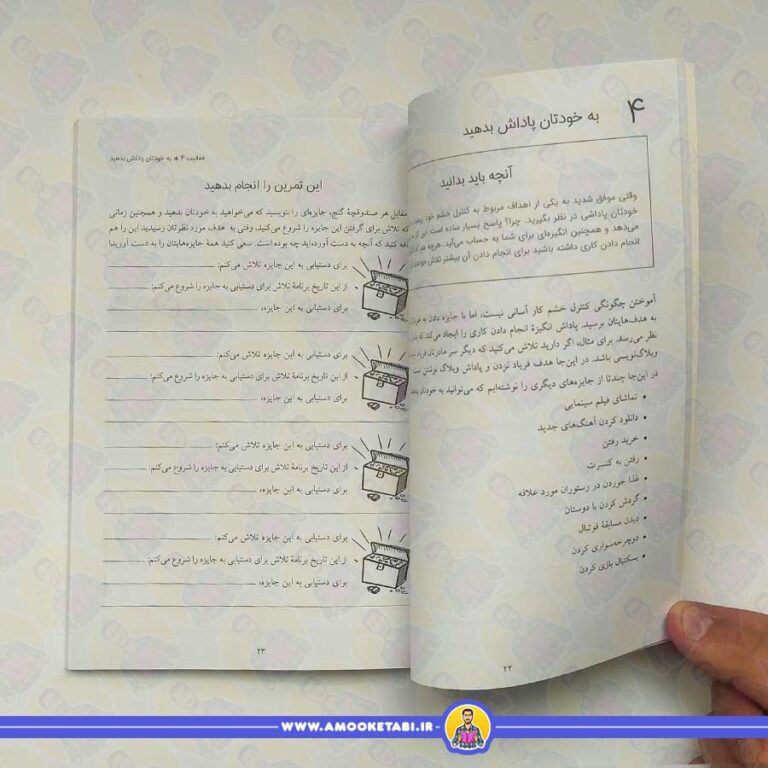 ۴
به خودتان پاداش بدهید
آنچه باید بدانید
وقتی موفق شدید به یکی از اهداف مربوط به کنترل خشم خود
خودتان پاداشی در نظر بگیرید. چرا؟ پاسخ بسیار ساده است. این
می‌دهد و همچنین انگیزه‌ای برای شما به حساب می‌آید. هرچه
انجام دادن کاری داشته باشید برای انجام دادن آن بیشتر تلاش
آموختن چگونگی کنترل خشم کار آسانی نیست، اما با جایزه دادن به
به هدف‌هایتان برسید. پاداش انگیزهٔ انجام دادن کاری را ایجاد می‌کند که
نظر می‌رسد. برای مثال، اگر دارید تلاش می‌کنید که دیگر سر مادرتان فریاد
وبلاگ‌نویسی باشد. در این‌جا هدف فریاد نزدن و پاداش وبلاگ نوشتن است
در این‌جا چندتا از جایزه‌های دیگری را نوشته‌ایم که می‌توانید به خودتان
• تماشای فیلم سینمایی
• دانلود کردن آهنگ‌های جدید
• خرید رفتن
• رفتن به کنسرت
• غذا خوردن در رستوران مورد علاقه
• گردش کردن با دوستان
• دیدن مسابقهٔ فوتبال
• دوچرخه‌سواری کردن
• بسکتبال بازی کردن
۲۲
فعالیت ۴ * به خودتان پاداش بدهید
این تمرین را انجام بدهید
مقابل هر صندوقچهٔ گنج، جایزه‌ای را بنویسید که می‌خواهید به خودتان بدهید و همچنین زمانی
که تلاش برای گرفتن این جایزه را شروع می‌کنید. وقتی به هدف مورد نظرتان رسیدید این را هم
کنید که آنچه به دست آورده‌اید چه بوده است. سعی کنید همهٔ جایزه‌هایتان را به دست آورید!
برای دستیابی به این جایزه تلاش می‌کنم:
از این تاریخ برنامهٔ تلاش برای دستیابی به جایزه را شروع می‌کنم:
برای دستیابی به این جایزه،
برای دستیابی به این جایزه تلاش می‌کنم:
از این تاریخ برنامهٔ تلاش برای دستیابی به جایزه را شروع می‌کنم:
برای دستیابی به این جایزه،
برای دستیابی به این جایزه تلاش می‌کنم:
از این تاریخ برنامهٔ تلاش برای دستیابی به جایزه را شروع می‌کنم:
برای دستیابی به این جایزه،
برای دستیابی به این جایزه تلاش می‌کنم:
از این تاریخ برنامهٔ تلاش برای دستیابی به جایزه را شروع می‌کنم:
برای دستیابی به این جایزه،
۲۳
WWW.AMOOKETABI.IR